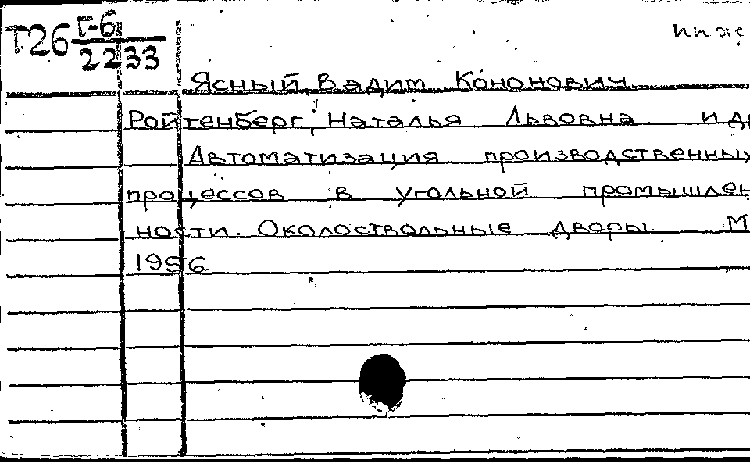 Т26 Г-6
2233
Ясный, Вадим Кононович
Ройтенберг, Наталья Львовна и др
Автоматизация производственных
процессов в угольной промышлен
ности. Околоствольные дворы М
1956